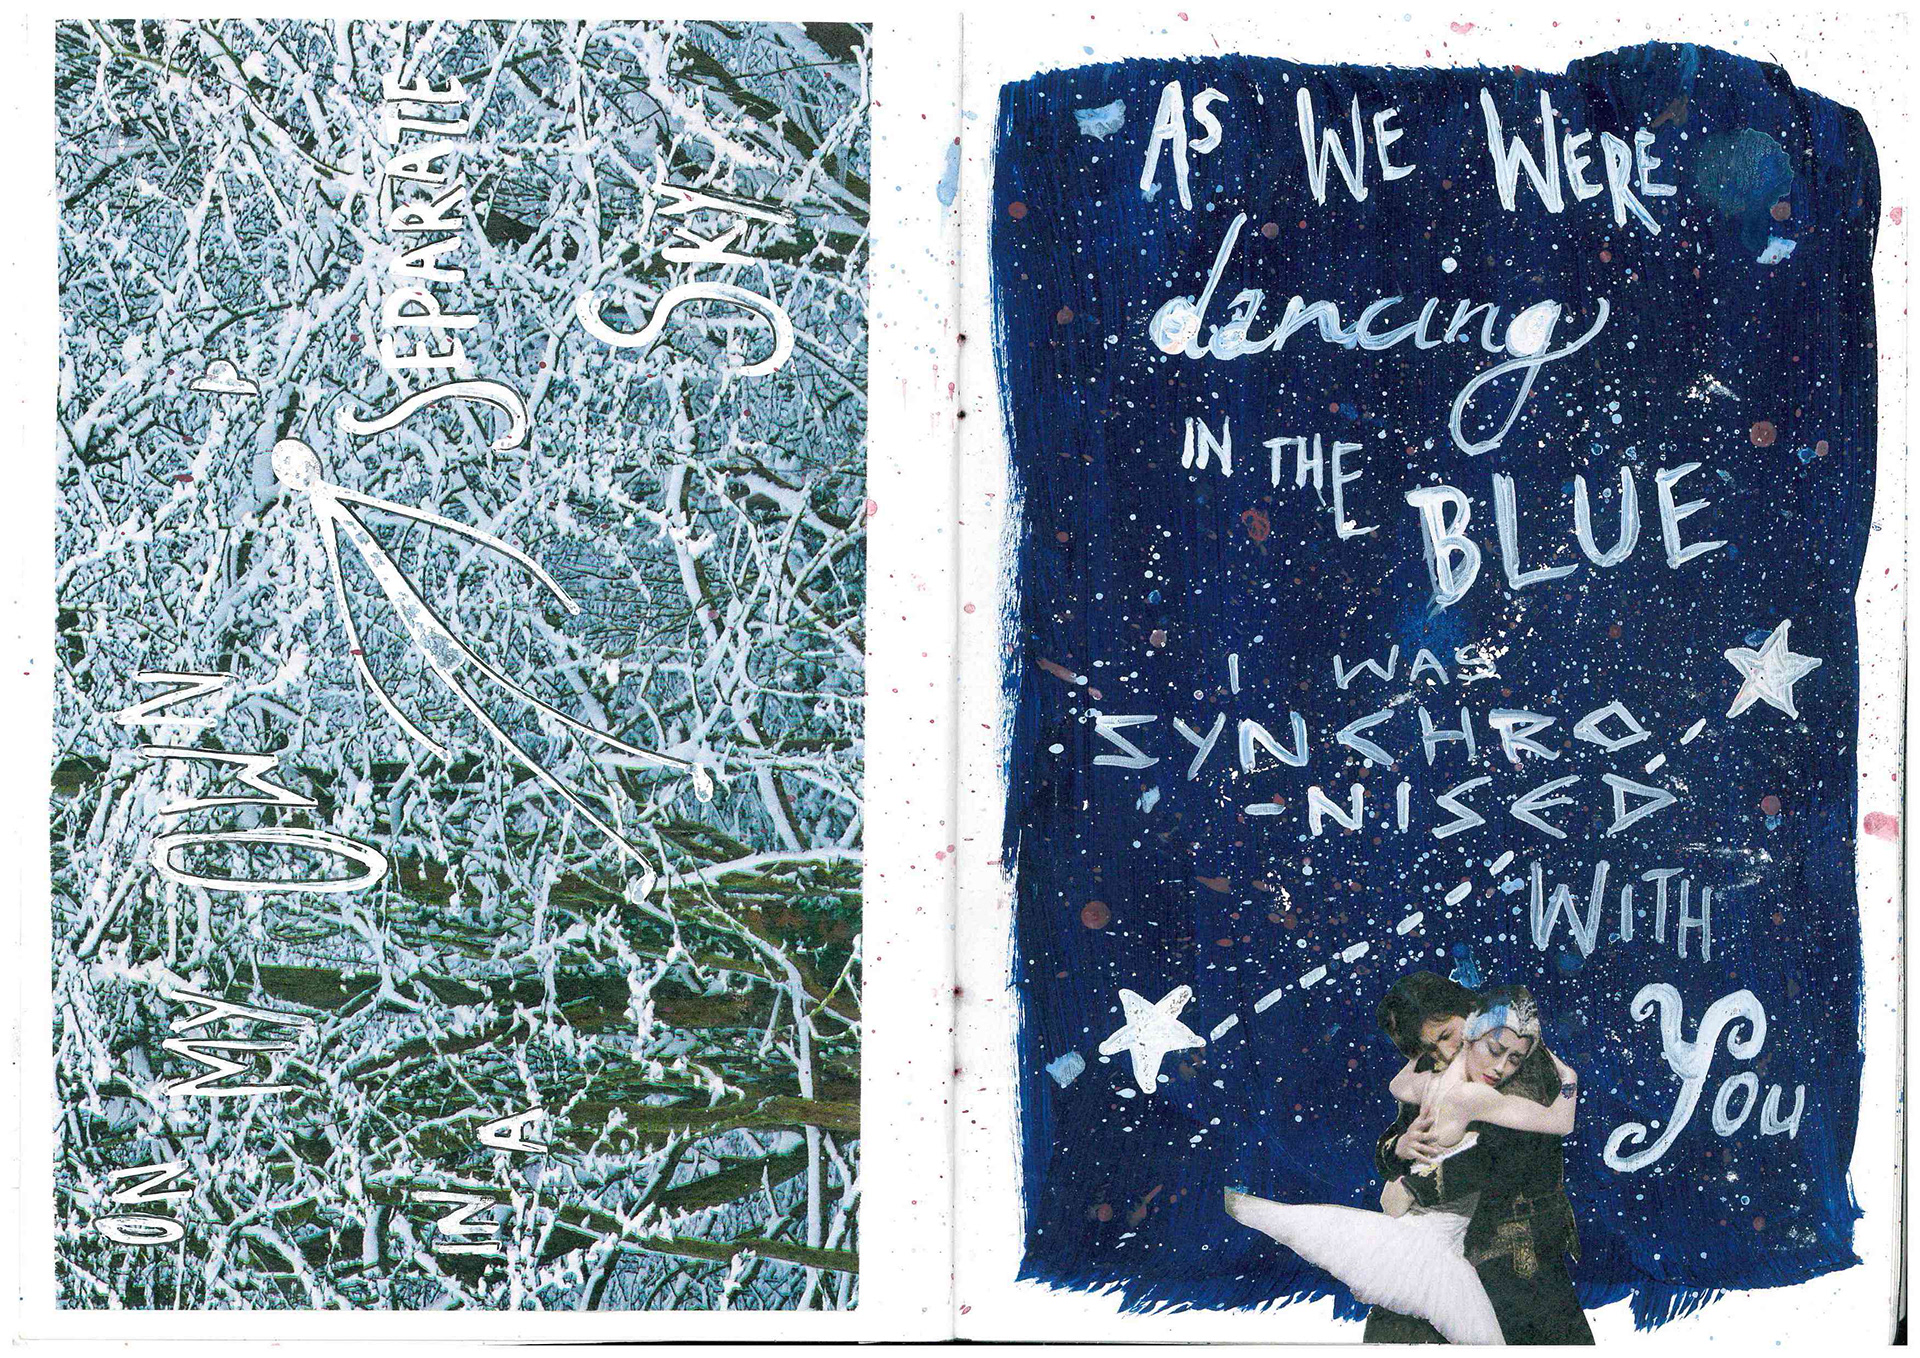 ON MY OWN
IN A SEPARATE
SKY
AS WE WERE
dancing
IN THE
BLUE
I WAS
SYNCHRO
-NISED
WITH
You